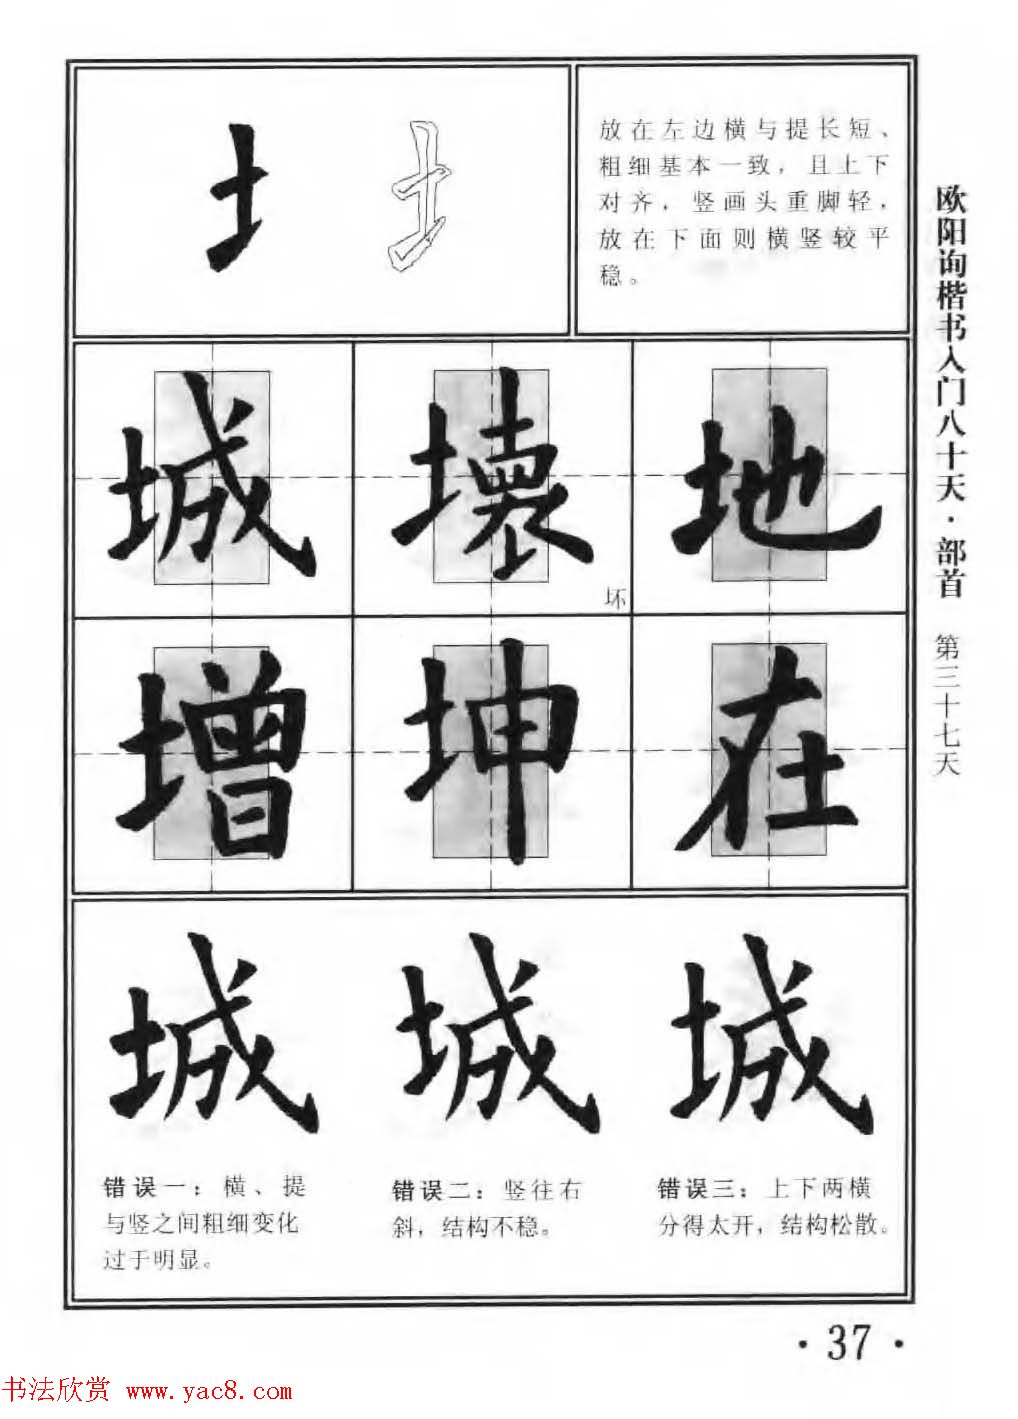 土 土
放在左边横与提长短、
粗细基本一致，且上下
对齐，竖画头重脚轻，
放在下面则横竖较平
稳。
城 壞 地
坏
增 坤 在
城 城 城
错误一：横、提
与竖之间粗细变化
过于明显。
错误二：竖往右
斜，结构不稳。
错误三：上下两横
分得太开，结构松散。
欧阳询楷书入门八十天·部首 第三十七天
·37·
书法欣赏 www.yac8.com